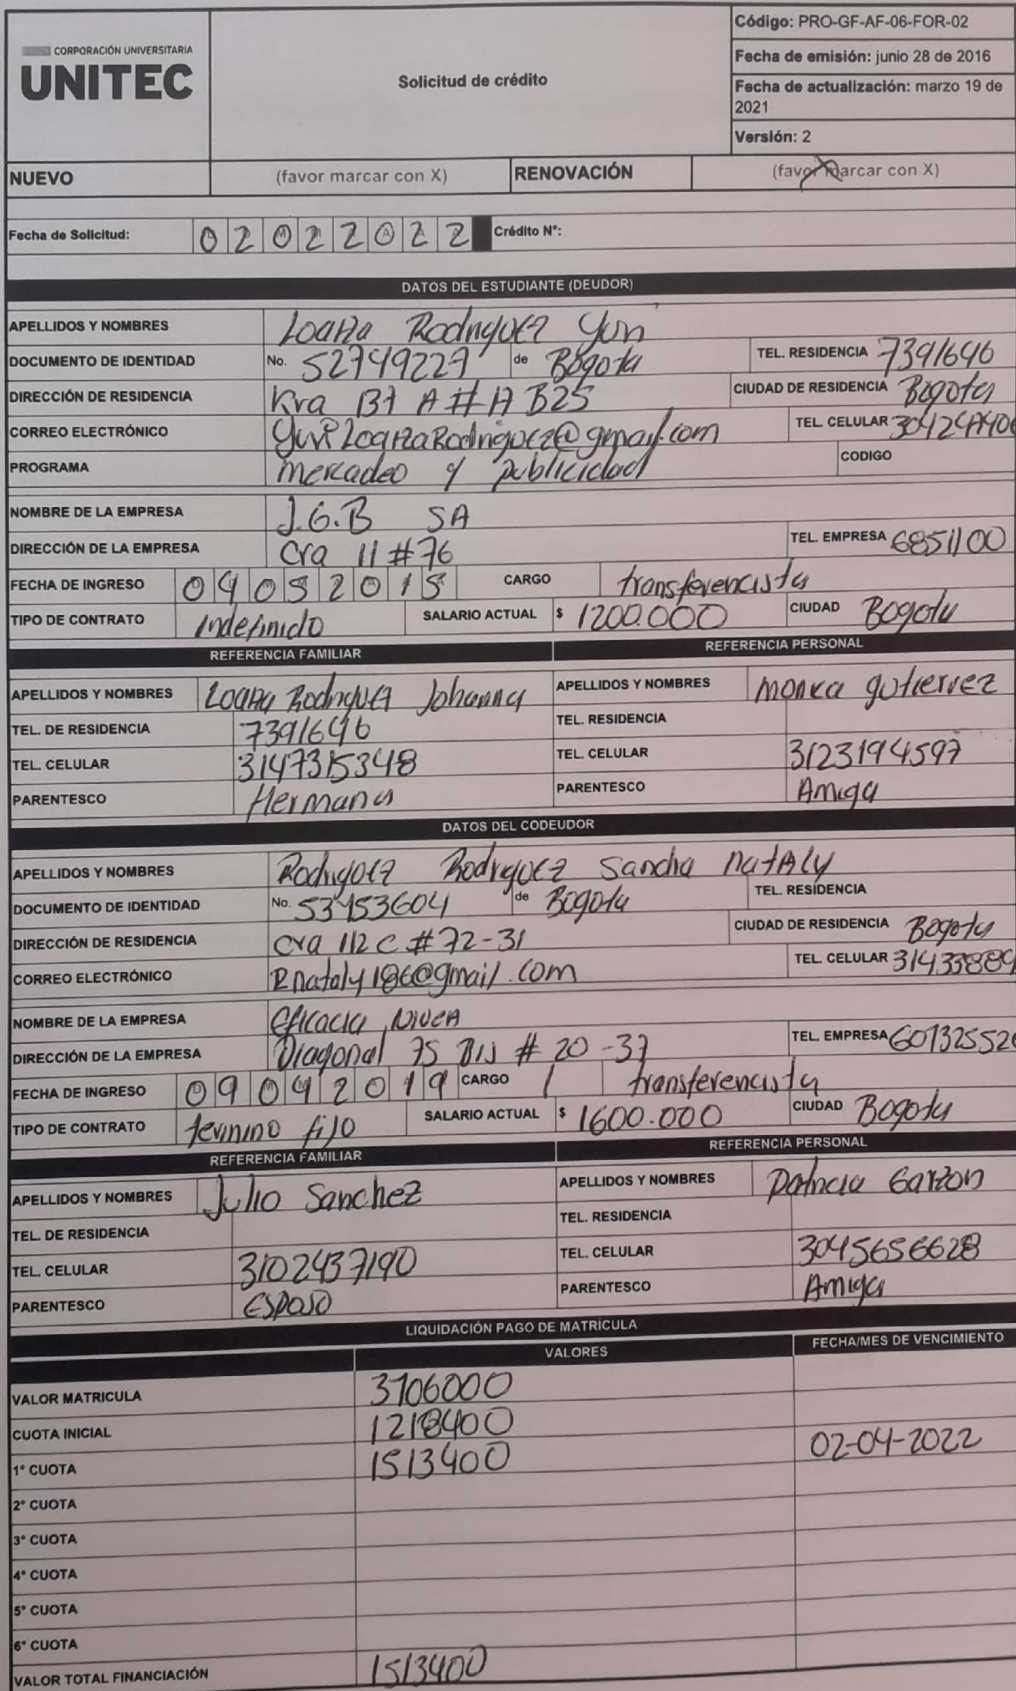 CORPORACIÓN UNIVERSITARIA
UNITEC
Solicitud de crédito
Código: PRO-GF-AF-06-FOR-02
Fecha de emisión: junio 28 de 2016
Fecha de actualización: marzo 19 de
2021
Versión: 2
NUEVO (favor marcar con X) RENOVACIÓN (favor marcar con X) X
Fecha de Solicitud: 02022022 Crédito N°:
DATOS DEL ESTUDIANTE (DEUDOR)
APELLIDOS Y NOMBRES Loaiza Rodriguez Yuri
DOCUMENTO DE IDENTIDAD No. 52749227 de Bogota TEL. RESIDENCIA 7391646
DIRECCIÓN DE RESIDENCIA CIUDAD DE RESIDENCIA Bogota
CORREO ELECTRÓNICO YuriLoaizaRodriguez@gmail.com TEL. CELULAR
PROGRAMA mercadeo y publicidad CODIGO
NOMBRE DE LA EMPRESA J.G.B SA
DIRECCIÓN DE LA EMPRESA Cra 11 #76 TEL. EMPRESA 6851100
FECHA DE INGRESO 04052015 CARGO transferencista
TIPO DE CONTRATO Indefinido SALARIO ACTUAL $ 1200.000 CIUDAD Bogota
REFERENCIA FAMILIAR REFERENCIA PERSONAL
APELLIDOS Y NOMBRES Loaiza Rodriguez Johanna APELLIDOS Y NOMBRES Monica gutierrez
TEL. DE RESIDENCIA 7391646 TEL. RESIDENCIA
TEL. CELULAR 3147315348 TEL. CELULAR 3123194597
PARENTESCO Hermana PARENTESCO Amiga
DATOS DEL CODEUDOR
APELLIDOS Y NOMBRES Rodriguez Rodriguez Sandra natAly
DOCUMENTO DE IDENTIDAD No. 53153604 de Bogota TEL. RESIDENCIA
DIRECCIÓN DE RESIDENCIA cra 112 c #72-31 CIUDAD DE RESIDENCIA Bogota
CORREO ELECTRÓNICO Rnataly186@gmail.com TEL. CELULAR
NOMBRE DE LA EMPRESA Eficacia, NiveA
DIRECCIÓN DE LA EMPRESA Diagonal 75 Bis # 20-37 TEL. EMPRESA
FECHA DE INGRESO 09042019 CARGO transferencista
TIPO DE CONTRATO termino fijo SALARIO ACTUAL $ 1600.000 CIUDAD Bogota
REFERENCIA FAMILIAR REFERENCIA PERSONAL
APELLIDOS Y NOMBRES Julio Sanchez APELLIDOS Y NOMBRES Patricia Garzon
TEL. DE RESIDENCIA TEL. RESIDENCIA
TEL. CELULAR 3102437190 TEL. CELULAR 3045656628
PARENTESCO Esposo PARENTESCO Amiga
LIQUIDACIÓN PAGO DE MATRÍCULA
VALORES FECHA/MES DE VENCIMIENTO
VALOR MATRICULA 3706000
CUOTA INICIAL 1218400
1° CUOTA 1513400 02-04-2022
2° CUOTA
3° CUOTA
4° CUOTA
5° CUOTA
6° CUOTA
VALOR TOTAL FINANCIACIÓN 1513400